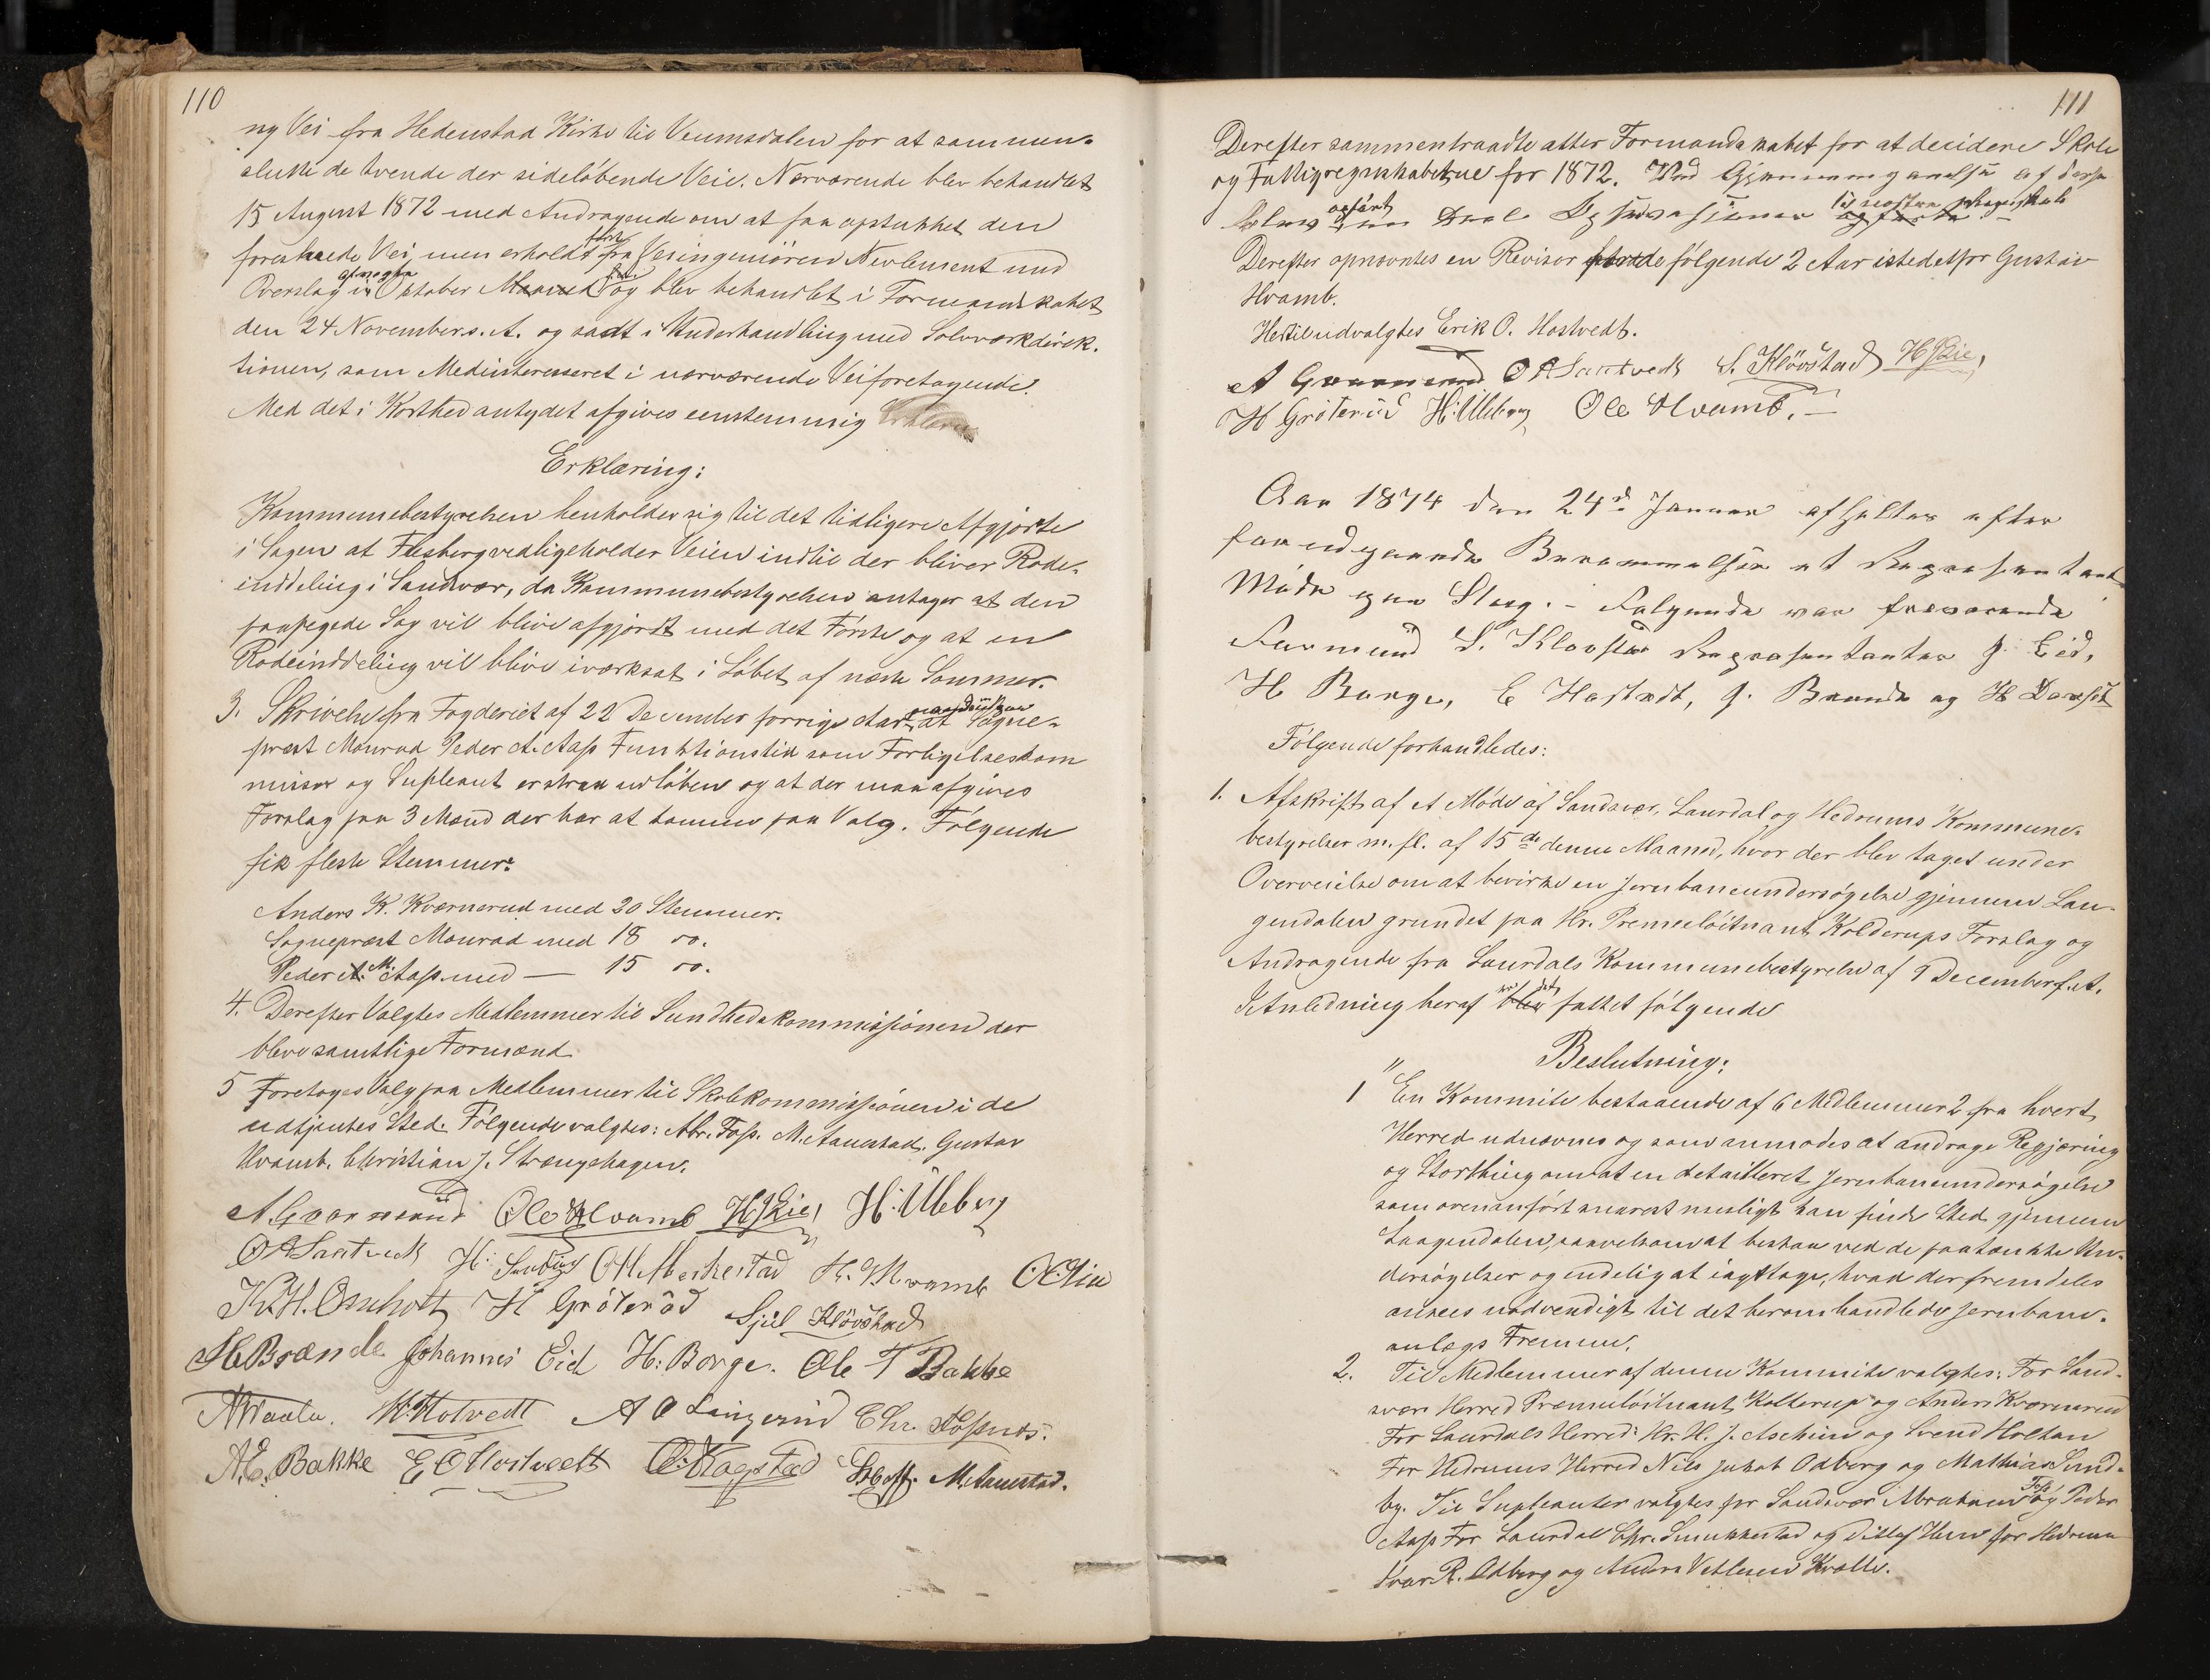 110
ny Vei fra Hedenstad Kirke til Veumsdalen for at sammen-
slutte de tvende der sideløbende Veie. Nærværende blev behandlet
15 August 1872 med Andragende om at faa opstukket den
foreslaaede Vei, men erholdt først fra Veiingeniøren med
Overslag i Oktober og blev behandlet i Formandskabet
den 24 November s. A. og sadt i Underhandling med Sølvværkdirek-
tionen, som Medinteresseret i nærværende Veiforetagende.
Med det i Korthed antydet afgives eenstemmig
Erklæring:
Kommunebestyrelsen henholder sig til det tidligere Afgjorte
i Sagen at Flesberg vedligeholder Veien indtil der bliver Rode-
inddeling i Sandsvær, da Kommunebestyrelsen antager at den
paapegede Sag vil blive afgjordt med det Første og at en
Rodeinddeling vil blive iværksat i Løbet af næste Sommer.
3. Skrivelse fra Fogderiet af 22 December forrige Aar at Sogne-
præst Monrad Peder A. Aas Funktionstid som Forligelseskom
missær og Supleant er strax udløben og at der maa afgives
Forslag paa 3 Mænd der har at komme paa Valg. Følgende
fik fleste Stemmer:
Anders K. Kværnerud med 20 Stemmer.
Sognepræst Monrad med 18 do.
Peder M. Aas med — 15 do.
4. Derefter Valgtes Medlemmer til Sundhedskommissionen der
blev samtlige Formænd.
5 Foretoges Valg paa Medlemmer til Skolekommissionen i de
udtjentes Sted. Følgende valgtes: Abr. Foss. M. Aanestad. Gustav
Hvamb. Christian J. Strængehagen.
Ole Hvamb HSkie, H. Ulleberg
O A Santvedt H: O H Meskestad
K. H. Omholt H Gröteröd Sjul Klövstad
H Brænde Johannes Eid H: Borge. Ole T Bakke
A O Lingerud
A. E. Bakke E O Hostvedt M. Aanestad.
111
Derefter sammentraadte atter Formandskabet for at decidere Skole
og Fattigregnskaberne for 1872. Ved Gjennemgaaelse af disse
blev opført en Deel
Derefter opnævntes en Revisor for de følgende 2 Aar istedetfor Gustav
Hvamb.
Hertil udvalgtes Erik O. Hostvedt.
O A Santvedt S. Klövstad HSkie,
H Gröteröd H: Ulleberg Ole Hvamb. —
Aar 1874 den 24d Januar afholdtes efter
foregaaende Berammelse et Repræsentant
Møde paa Skog. – Følgende var fraværende
Formænd S. Klovstad Repræsentanter J. Eid,
H Borge, E Hostvedt, J. Brænde og H
Følgende forhandledes:
1. Afskrift af et Møde af Sandsvær, Laurdal og Hedrums Kommune-
bestyrelser m. fl. af 15de denne Maaned, hvor der blev taget under
Overveielse om at bevirke en Jernbaneundersøgelse gjennem Lau-
gendalen grundet paa Hr. Premierløitnant Kolderups Forslag og
Andragende fra Laurdals Kommunebestyrelse af 9 December f. A.
I Anledning heraf fattet følgende
Beslutning:
1 "En Kommite bestaaende af 6 Medlemmer 2 fra hvert
Herred udnævnes og som anmodes at andrage Regjæring
og Storthing om at en detailleret Jernbaneundersøgelse
som ovenanført snarest muligt kan finde Sted gjennem
Laagendalen, saavelsom at bestaa ved de paatænkte Un-
dersøgelser og endelig at iagttage, hvad der fremdeles
ansees nødvendigt til det heromhandlede Jernbane-
anlægs Fremme.
2. Til Medlemmer af denne Kommite valgtes: For Sand-
svær Herred Premierløitnant Kolderup og Anders Kværnerud
For Laurdals Herred: Hr. H. J. Aschim og Svend Holtan
For Hedrums Herred Nils Jakob Odberg og Mathias Sund-
by. Til Supleanter valgtes for Sandsvær Abraham Foss og Peder
Aas For Laurdal Chr. Smukkestad og Ditlef Hem for Hedrum
Ivar R. Odberg og Anders Vetlesen Kvelle.